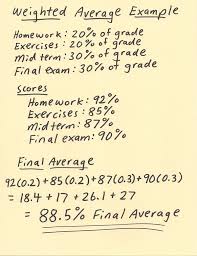 Weighted Average Example
Homework: 20% of grade
Exercises: 20% of grade
Midterm: 30% of grade
Final exam: 30% of grade
Scores
Homework: 92%
Exercises: 85%
midterm: 87%
Final exam: 90%
Final Average
92(0.2)+85(0.2)+87(0.3)+90(0.3)
= 18.4 + 17 + 26.1 + 27
= 88.5% Final Average